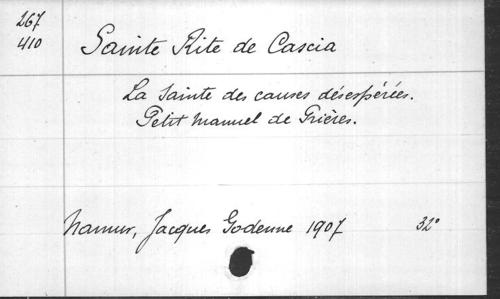 267
410
Sainte Rite de Cascia
La Sainte des causes désespérées.
Petit Manuel de Prières.
Namur, Jacques Godenne 1907 32°